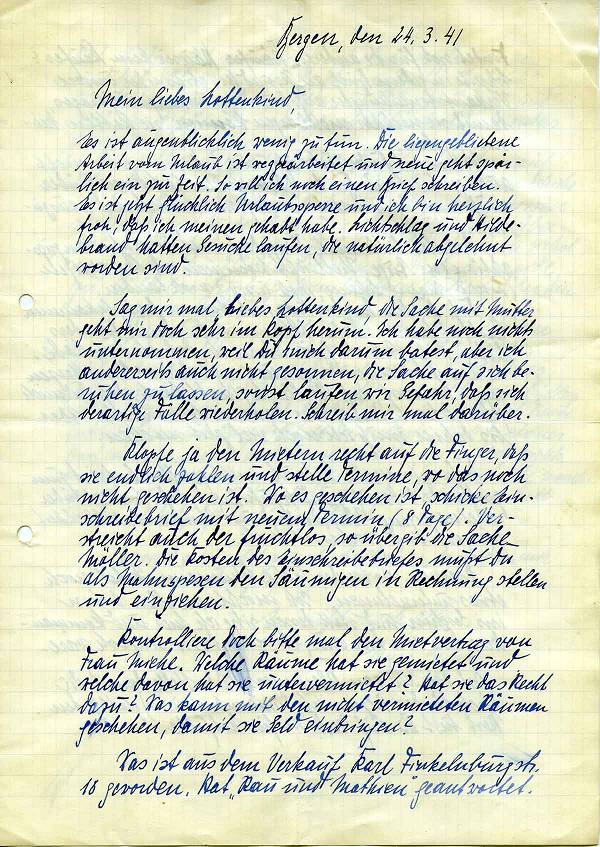 Bergen, den 24.3.41
Mein liebes Lottenkind,
Es ist augenblicklich wenig zu tun. Die liegengebliebene
Arbeit vom Urlaub ist weggearbeitet und neue geht spär-
lich ein zur Zeit. So will ich noch einen Brief schreiben.
Es ist jetzt glücklich Urlaubssperre und ich bin herzlich
froh, daß ich meinen gehabt habe. Lichtschlag und Hilde-
brand hatten Gesuche laufen, die natürlich abgelehnt
worden sind.
Sag mir mal, liebes Lottenkind, die Sache mit Mutter
geht mir doch sehr im Kopf herum. Ich habe noch nichts
unternommen, weil Du mich darum batest, aber ich
andererseits auch nicht gesonnen, die Sache auf sich be-
ruhen zu lassen, sonst laufen wir Gefahr, daß sich
derartige Fälle wiederholen. Schreib mir mal darüber.
Klopfe ja den Mietern recht auf die Finger, daß
sie endlich zahlen und stelle Termine, wo das noch
nicht geschehen ist. Wo es geschehen ist, schicke Ein-
schreibebrief mit neuem Termin (8 Tage). Ver-
streicht auch der fruchtlos, so übergib die Sache
Möller. Die Kosten des Einschreibebriefes mußt Du
als Mahnspesen den Säumigen in Rechnung stellen
und einziehen.
Kontrolliere doch bitte mal den Mietvertrag von
Frau Miehe. Welche Räume hat sie gemietet und
welche davon hat sie untervermietet? Hat sie das Recht
dazu? Was kann mit den nicht vermieteten Räumen
geschehen, damit sie Geld einbringen?
Was ist aus dem Verkauf Karl Finkelnburgstr.
18 geworden. Hat "Rau und Mathieu" geantwortet.